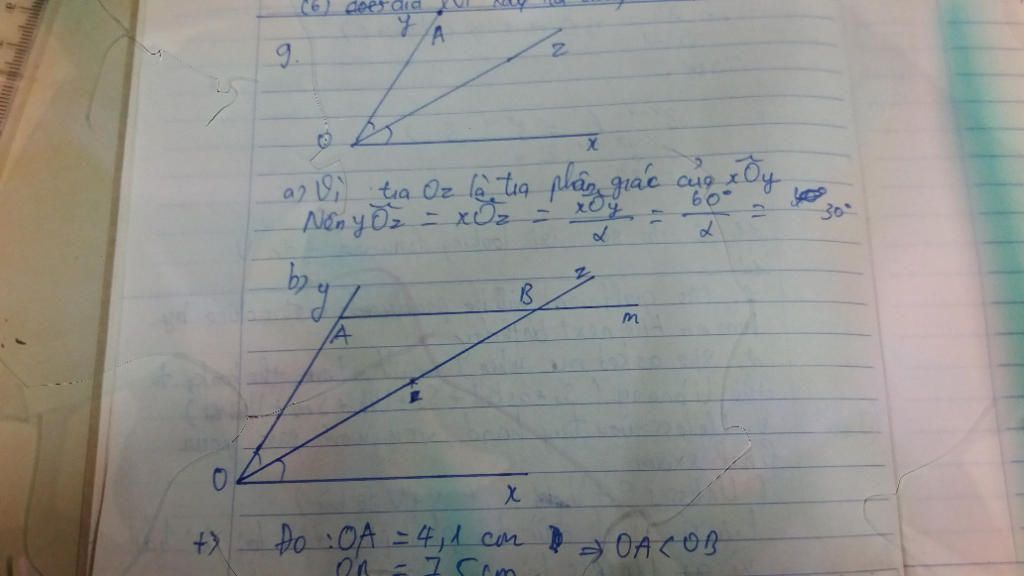 y
A
9.
z
O
x
a) Vì tia Oz là tia phân giác của xÔy
Nên yÔz = xÔz = xÔy/2 = 60°/2 = 30°
b) y
z
B
A
m
O
x
+) Đo : OA = 4,1 cm ⇒ OA < OB
OB = 7,5 cm